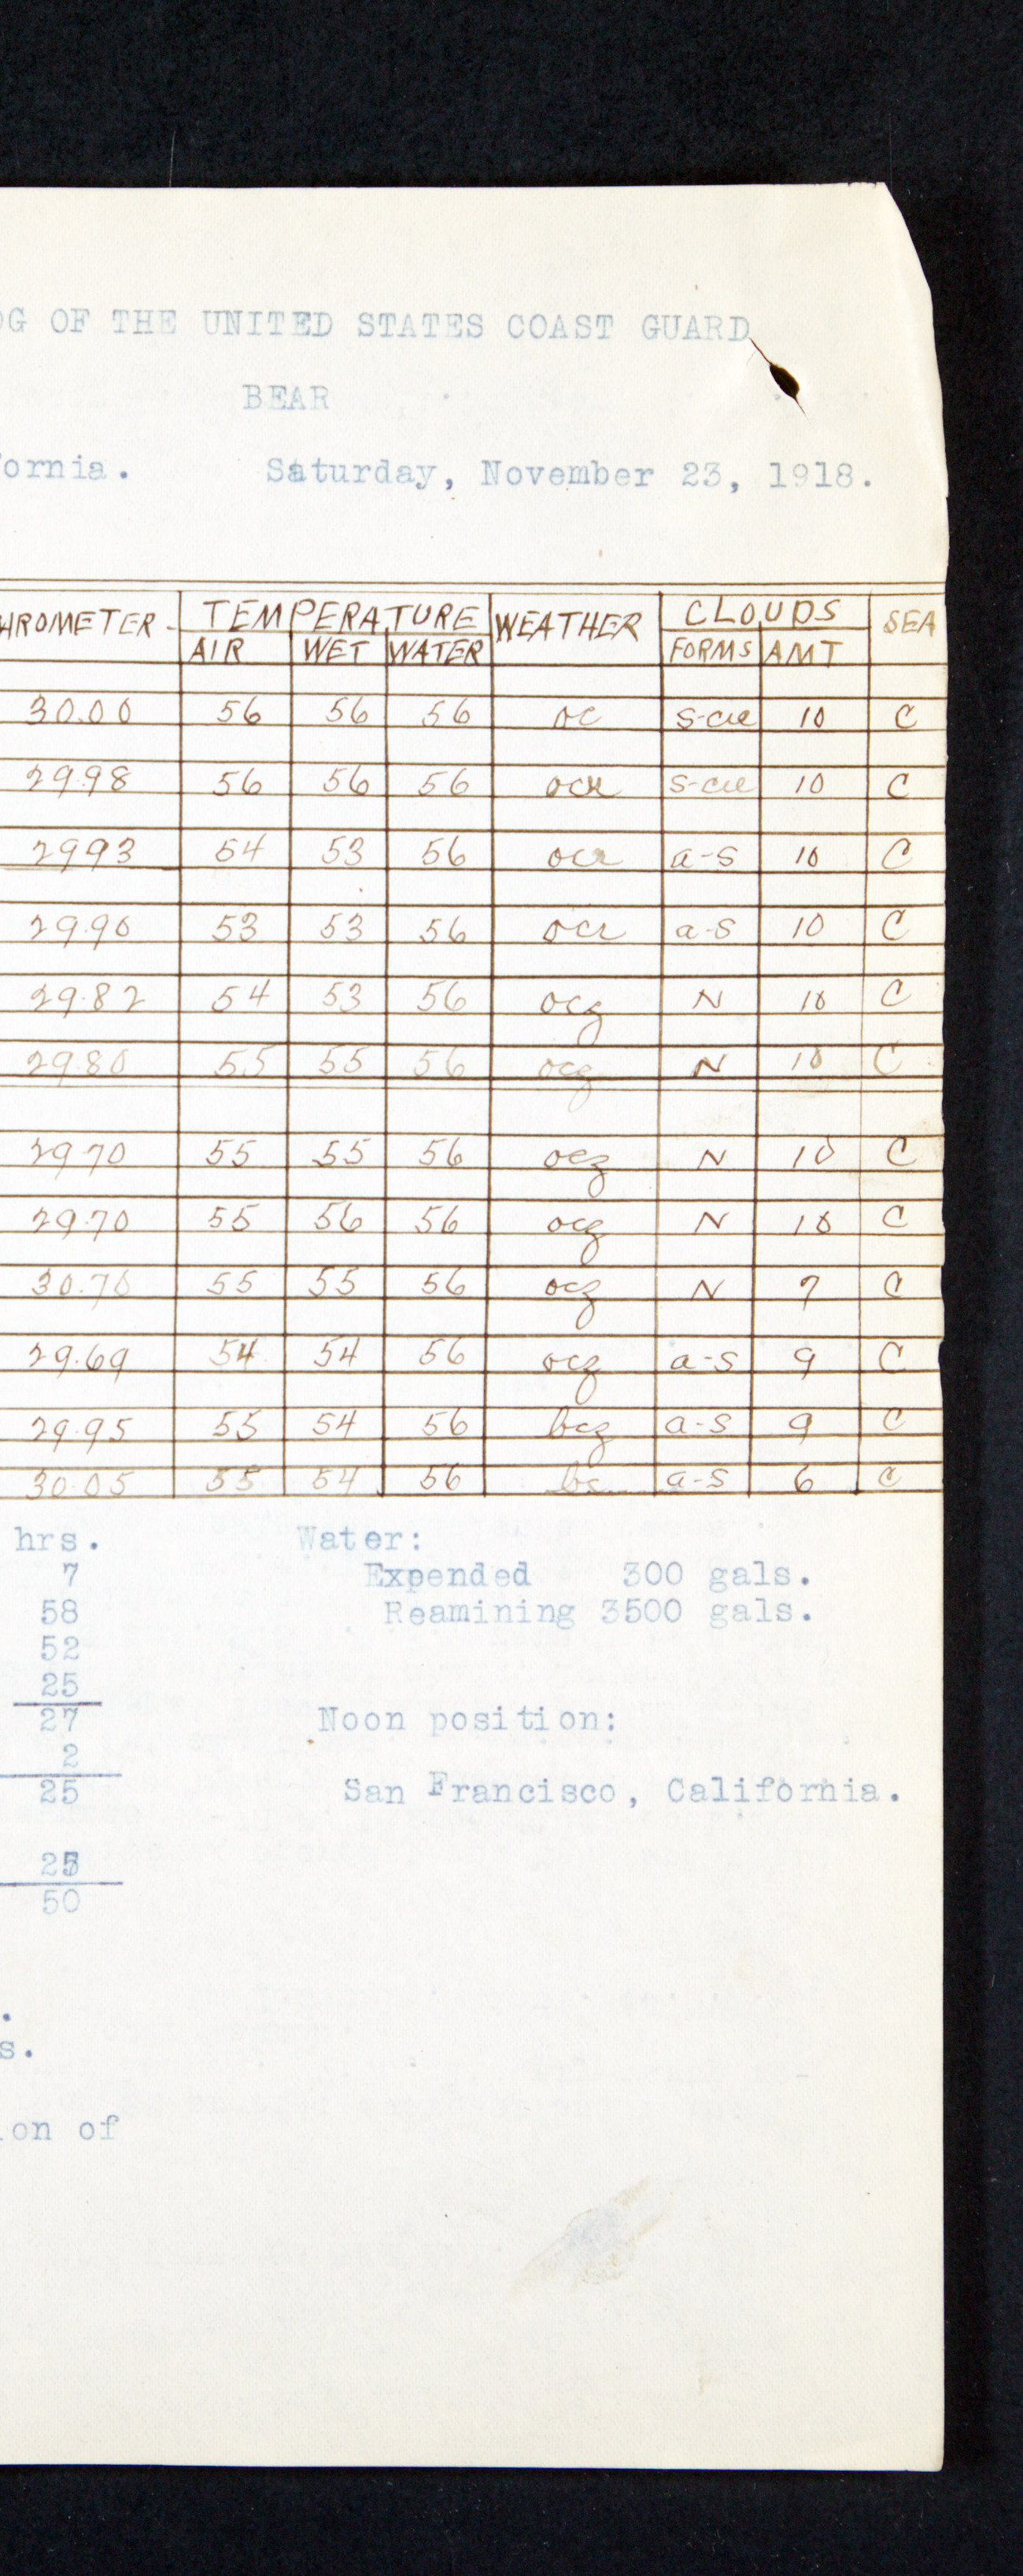 OG OF THE UNITED STATES COAST GUARD
BEAR
ornia. Saturday, November 23, 1918.
HROMETER TEMPERATURE WEATHER CLOUDS SEA
AIR WET WATER FORMS AMT
30.00 56 56 56 oc s-cu 10 C
29.98 56 56 56 ocr s-cu 10 C
2993 54 53 56 ocr a-s 10 C
29.90 53 53 56 ocr a-s 10 C
29.82 54 53 56 ocq N 10 C
29.80 55 55 56 ocq N 10 C
29.70 55 55 56 ocq N 10 C
29.70 55 56 56 ocq N 10 C
30.70 55 55 56 ocq N 7 C
29.69 54 54 56 ocq a-s 9 C
29.95 55 54 56 bcq a-s 9 C
30.05 55 54 56 bc a-s 6 C
hrs. Water:
7 Expended 300 gals.
58 Reamining 3500 gals.
52
25
27 Noon position:
2
25 San Francisco, California.
25
50
s.
ion of